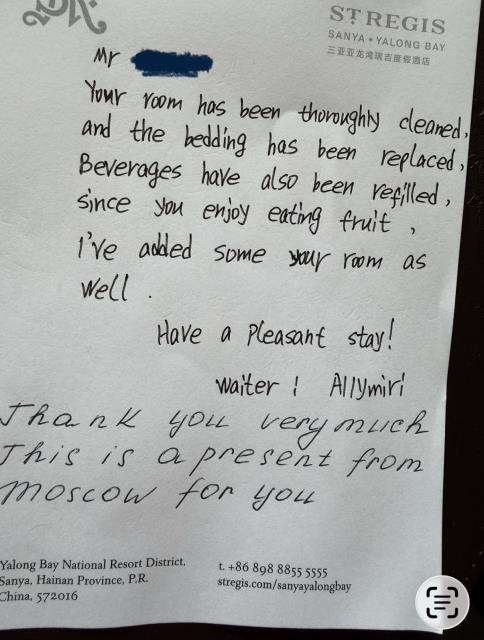 ST REGIS
SANYA • YALONG BAY
三亚亚龙湾瑞吉度假酒店
Mr
Your room has been thoroughly cleaned,
and the bedding has been replaced,
Beverages have also been refilled,
since you enjoy eating fruit ,
I've added some your room as
well .
Have a pleasant stay!
waiter ! Allymiri
Thank you very much
This is a present from
Moscow for you
Yalong Bay National Resort District,
Sanya, Hainan Province, P.R.
China, 572016
t. +86 898 8855 5555
stregis.com/sanyayalongbay